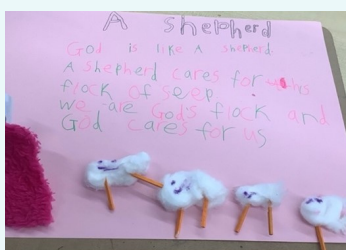 A shepherd
God is like A shepherd.
A shepherd cares for his
flock of seep
we are God's flock and
God cares for us.